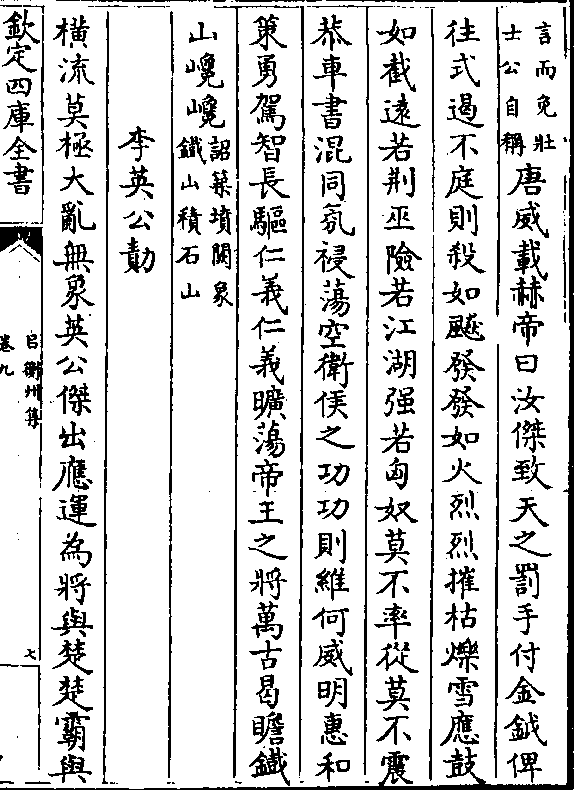 言而免壯
士公自稱
唐威載赫帝曰汝傑致天之罰手付金鉞俾
往式遏不庭則殺如飈發發如火烈烈摧枯爍雪應鼓
如截遠若荆巫險若江湖强若匈奴莫不率從莫不震
恭車書混同氛祲蕩空衛侯之功功則維何威明惠和
策勇駕智長驅仁義仁義曠蕩帝王之將萬古曷瞻鐵
山巉巉
詔築墳闕象
鐵山積石山
李英公勣
橫流莫極大亂無象英公傑出應運為將與楚楚霸與
欽定四庫全書
吕衡州集
卷九
七